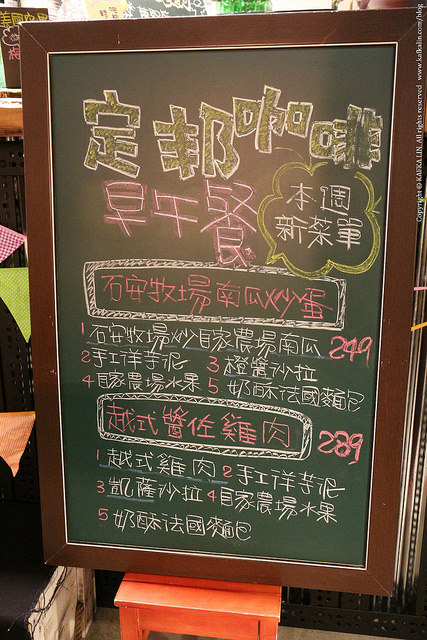 定邦咖啡
早午餐
本週
新菜單
石安牧場南瓜炒蛋
1 石安牧場炒自家農場南瓜 249
2 手工洋芋泥 3 橙醬沙拉
4 自家農場水果 5 奶酥法國麵包
越式醬佐雞肉 289
1 越式雞肉 2 手工洋芋泥
3 凱薩沙拉 4 自家農場水果
5 奶酥法國麵包
Copyright © KAFKA LIN. All rights reserved www.kafkalin.com/blog